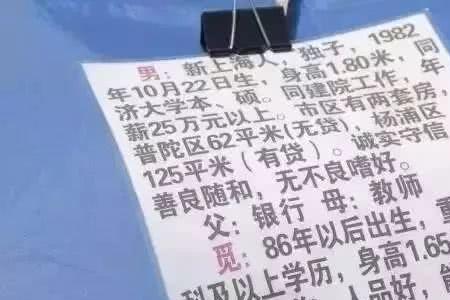 男：新上海人，独子，1982
年10月22日生，身高1.80米，同
济大学本、硕。同建院工作，年
薪25万元以上。市区有两套房，
普陀区62平米(无贷)，杨浦区
125平米（有贷）。诚实守信
善良随和，无不良嗜好。
父：银行 母：教师
觅：86年以后出生，重
科及以上学历，身高1.65
人品好，能